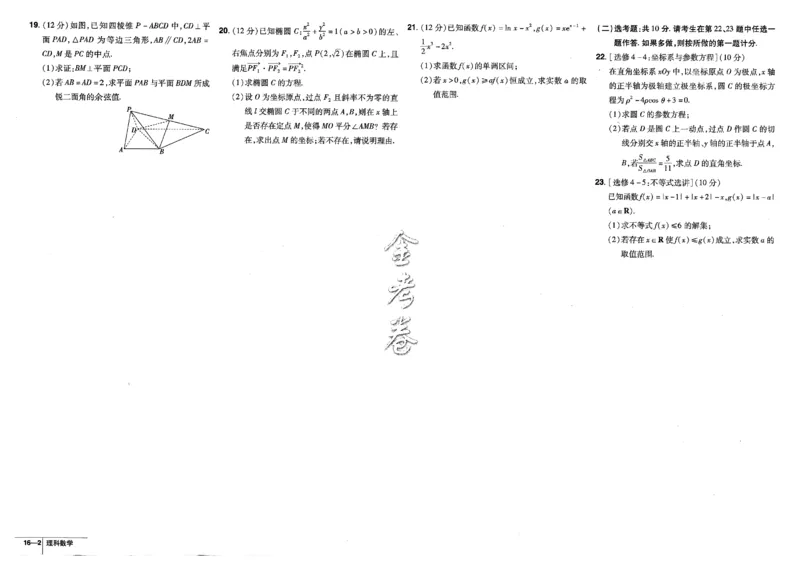 19. (12分)如图,已知四棱锥 P-ABCD 中,CD⊥平
面 PAD,△PAD 为等边三角形,AB∥CD,2AB=
CD,M 是 PC 的中点.
(1)求证:BM⊥平面 PCD;
(2)若 AB=AD=2,求平面 PAB 与平面 BDM 所成
锐二面角的余弦值.
P
M
D
C
A
B
20. (12分)已知椭圆 C: x²/a² + y²/b² = 1(a>b>0)的左、
右焦点分别为 F₁,F₂,点 P(2,√2)在椭圆 C 上,且
满足 PF₁·PF₂=PF₂².
(1)求椭圆 C 的方程.
(2)设 O 为坐标原点,过点 F₂ 且斜率不为零的直
线 l 交椭圆 C 于不同的两点 A,B,则在 x 轴上
是否存在定点 M,使得 MO 平分∠AMB? 若存
在,求出点 M 的坐标;若不存在,请说明理由.
21. (12分)已知函数 f(x)=ln x-x²,g(x)=xeˣ⁻¹+
1/2 x³-2x².
(1)求函数 f(x)的单调区间;
(2)若 x>0,g(x)≥af(x)恒成立,求实数 a 的取
值范围.
(二)选考题:共10分.请考生在第22、23题中任选一
题作答.如果多做,则按所做的第一题计分.
22. [选修4-4:坐标系与参数方程](10分)
在直角坐标系 xOy 中,以坐标原点 O 为极点,x 轴
的正半轴为极轴建立极坐标系,圆 C 的极坐标方
程为 ρ²-4ρcos θ+3=0.
(1)求圆 C 的参数方程;
(2)若点 D 是圆 C 上一动点,过点 D 作圆 C 的切
线分别交 x 轴的正半轴、y 轴的正半轴于点 A,
B,若 S△ABC/S△OAB = 5/11,求点 D 的直角坐标.
23. [选修4-5:不等式选讲](10分)
已知函数 f(x)=|x-1|+|x+2|-x,g(x)=|x-a|
(a∈R).
(1)求不等式 f(x)≤6 的解集;
(2)若存在 x∈R 使 f(x)≤g(x)成立,求实数 a 的
取值范围.
金
考
卷
16—2 理科数学